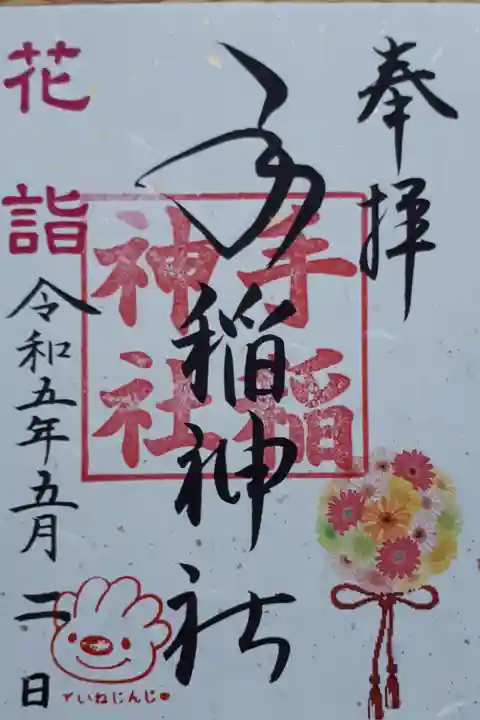 奉拝
手稲神社
手稲
神社
花詣
令和五年五月二日
ていねじんじゃ